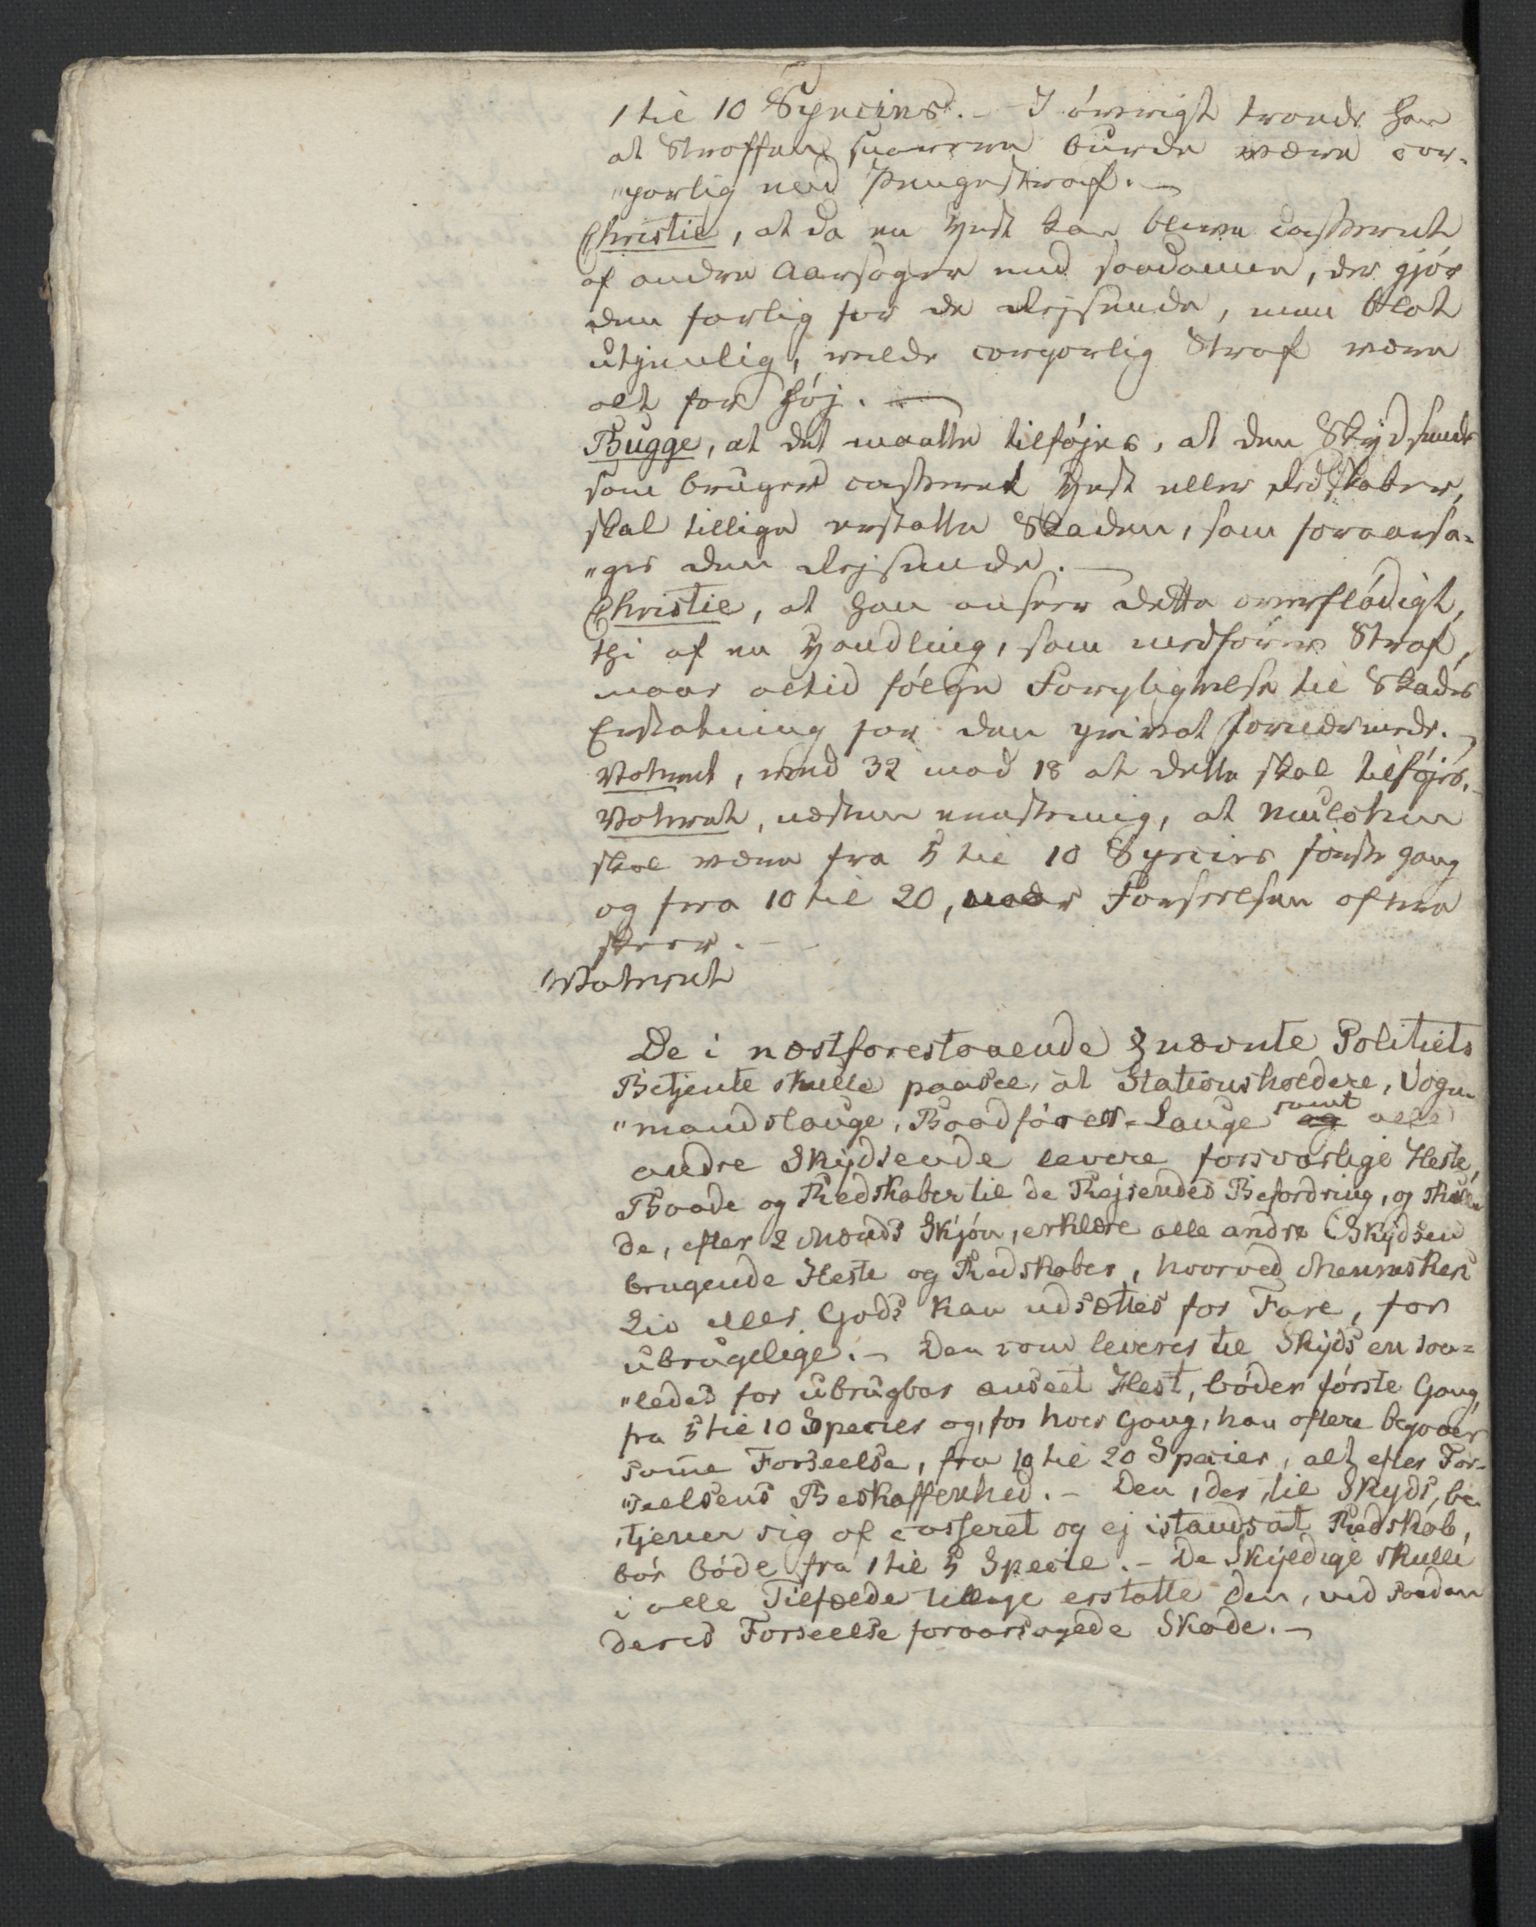 1 til 10 Species. – I øvrigt troede han
at Straffen snarere burde være cor-
"porlig end Pengestraf. –
Christie, at da en Hest kan blive casseret
af andre Aarsager end saadanne, der gjør
den farlig for de Rejsende, men blot
utjenlig, vilde corporlig Straf være
alt for høj. –
Bugge, at det maatte tilføjes, at den Skydsende
som bruger casseret Hest eller Redskaber,
skal tillige erstatte Skaden, som foraarsa-
"ges den Rejsende. –
Christie, at han anseer dette overflødigt,
thi af en Handling, som medfører Straf,
maae altid følge Forpligtelse til Skades
Erstatning for den privat fornærmede. –
Voteret, med 32 mod 18 at dette skal tilføjes. –
Voteret, næsten eenstemig, at Mulcten
skal være fra 5 til 10 Species første Gang
og fra 10 til 20, naar Forseelsen oftere
skeer. –
Voteret
De i næstforestaaende § nævnte Politiets
Betjente skulle paasee, at Stationsholdere, Vogn-
"mandslauge, Baadførere-Lauge og samt alle
andre Skydsende levere forsvarlige Heste,
Baade og Redskaber til de Rejsendes Befordring, og skulle
de, efter 2 Mænds Skjøn, erklære alle andre Skydsen
brugende Heste og Redskaber, hvorved Menneskers
Liv eller Gods kan udsættes for Fare, for
ubrugelige. – Den som leverer til Skyds en saa-
"ledes for ubrugbar anseet Hest, bøder første Gang,
fra 5 til 10 Species og, for hver Gang, han oftere begaaer
samme Forseelse, fra 10 til 20 Specier, alt efter For-
"seelsens Beskaffenhed. – Den, der, til Skyds, be-
tjener sig af casseret og ej istandsat Redskab,
bør bøde fra 1 til 5 Specie. – De Skyldige skulle
i alle Tilfælde tillige erstatte den, ved saadan
deres Forseelse foraarsagede Skade. –